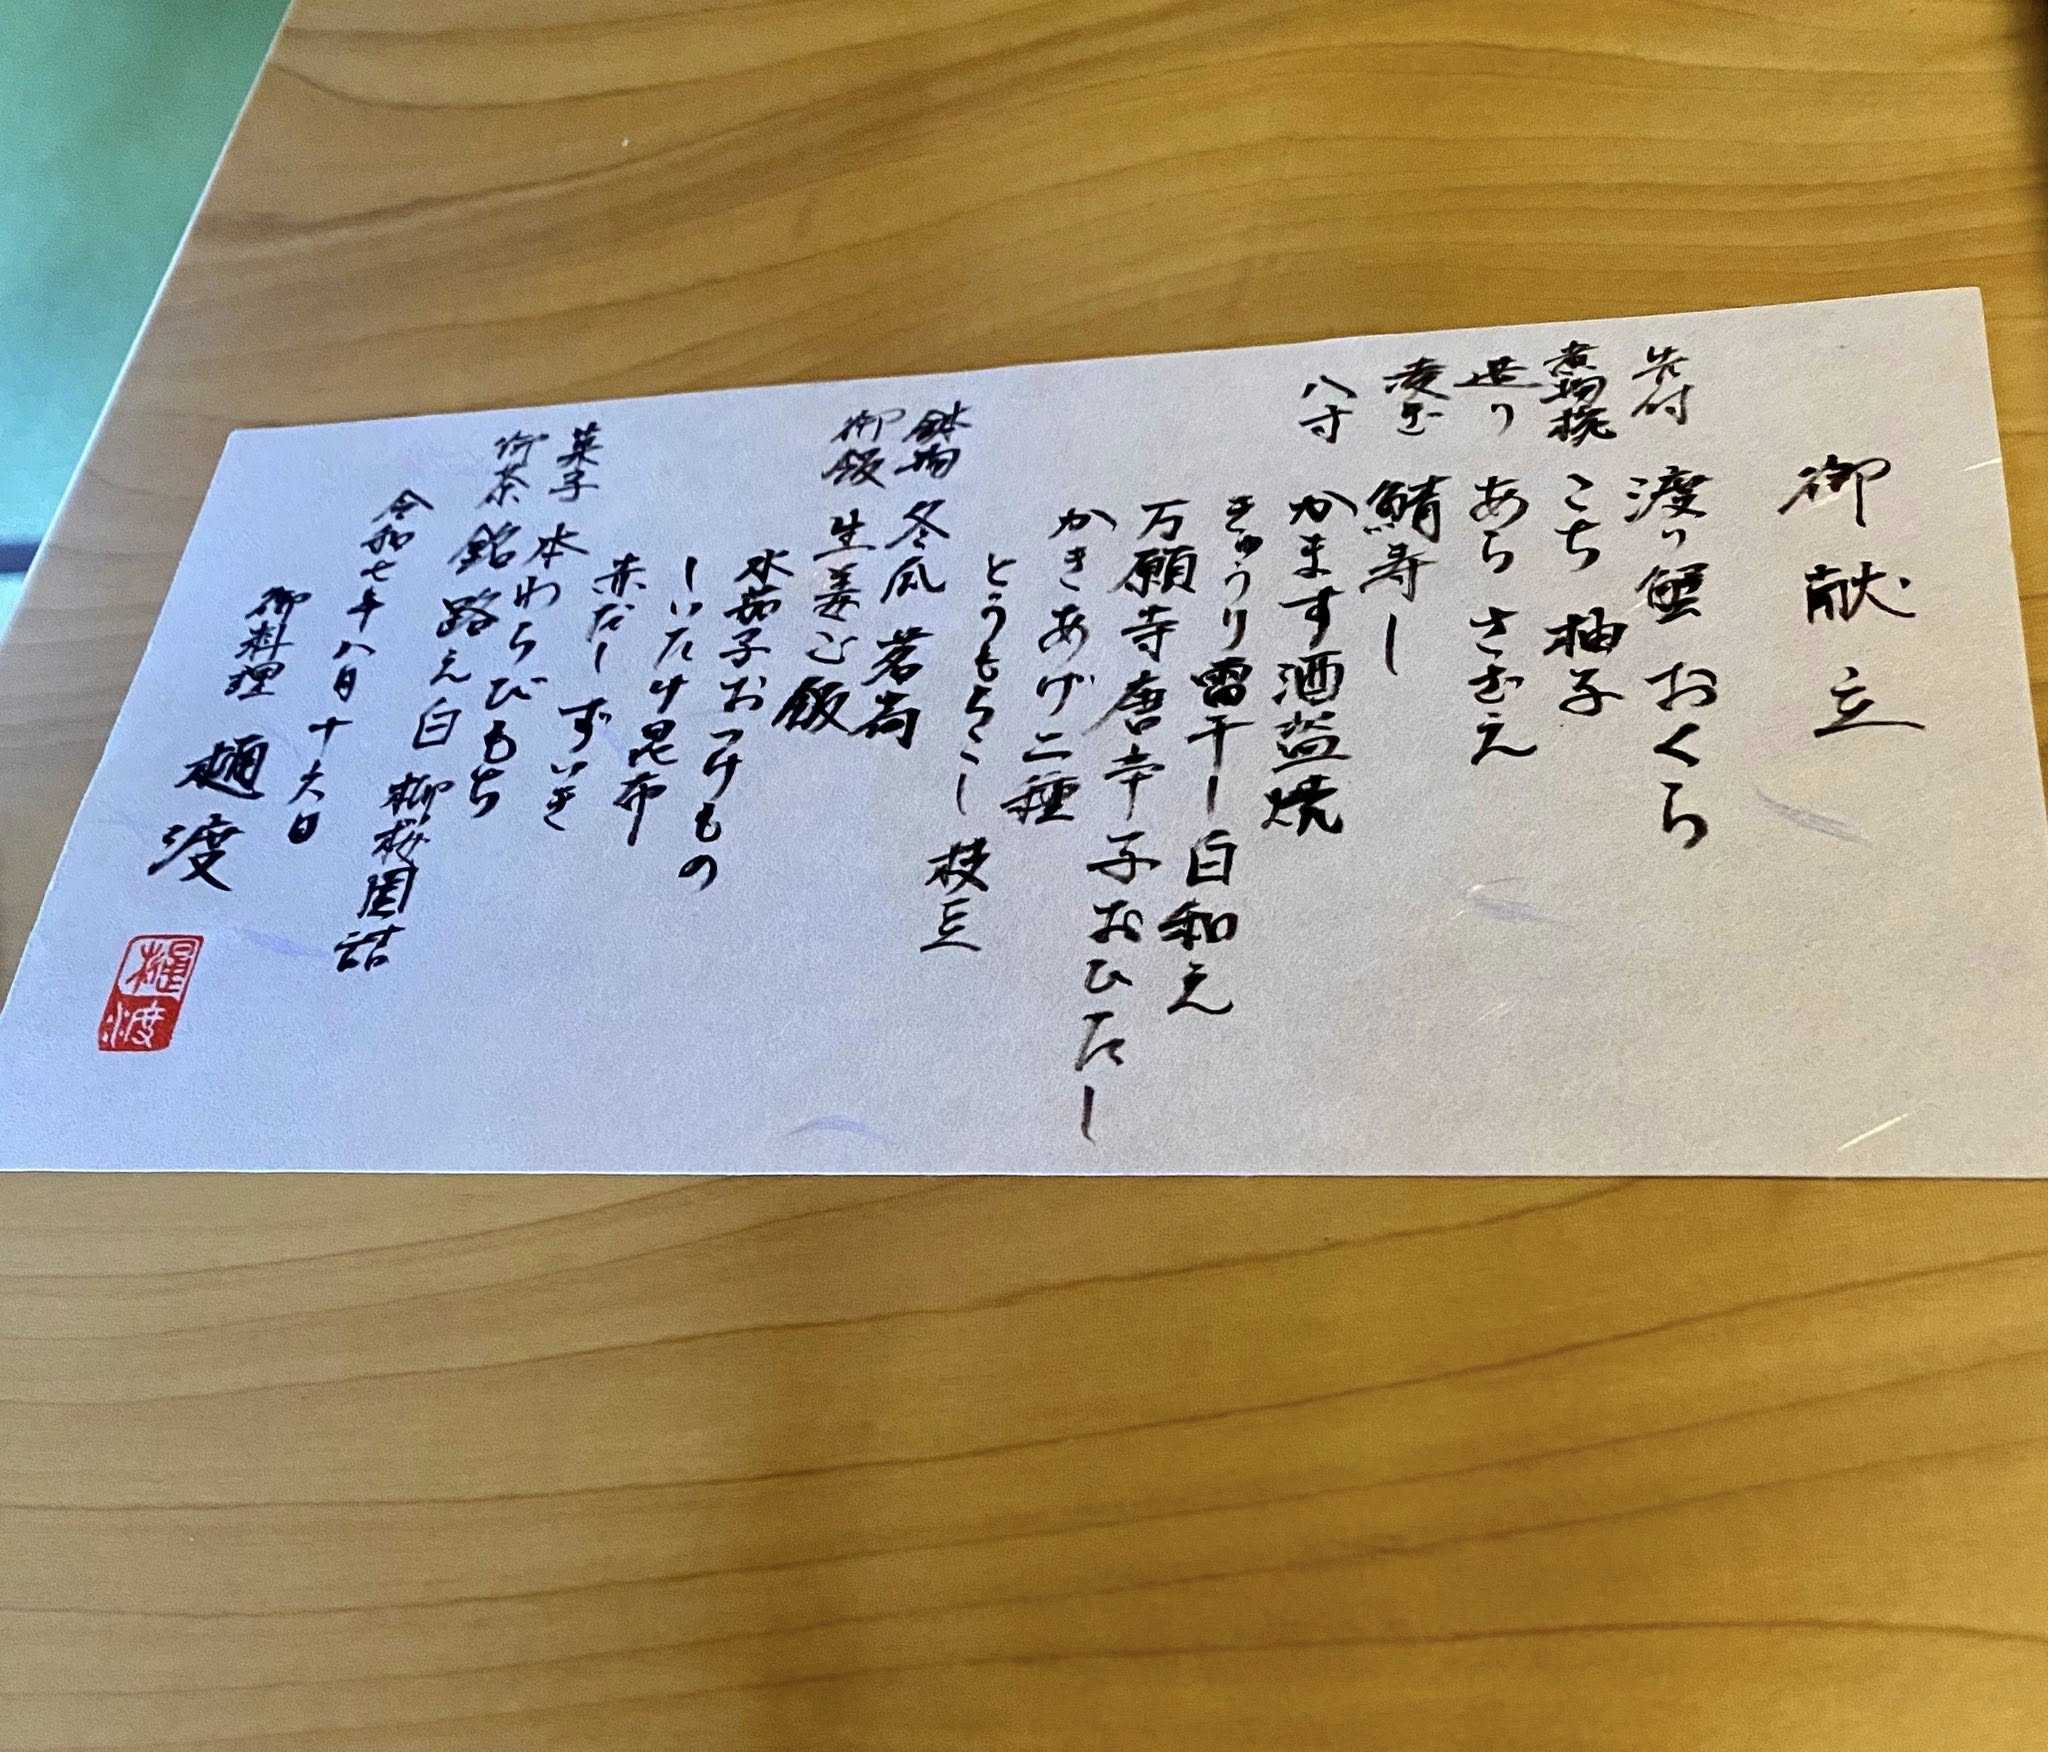 御献立
先付 渡り蟹 おくら
煮物椀 こち 柚子
造り あら さざえ
凌ぎ 鯖寿し
八寸 かます酒盗焼
きゅうり雷干し白和え
万願寺唐辛子おひたし
かきあげ二種
とうもろこし 枝豆
鉢物 冬瓜 茗荷
御飯 生姜ご飯
水茄子おつけもの
しいたけ昆布
赤だし ずいき
菓子 本わらびもち
御茶 銘 路え白 柳桜園詰
令和七年八月十六日
御料理 樋渡
樋渡